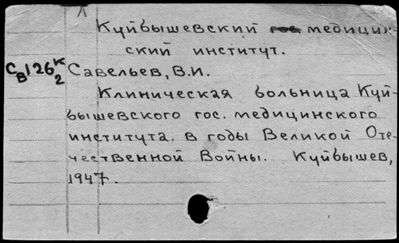 Куйбышевский гос. медицин-
ский институт.
Св126 К/2 Савельев, В.И.
Клиническая больница Куй-
бышевского гос. медицинского
института в годы Великой Оте-
чественной Войны. Куйбышев,
1947.